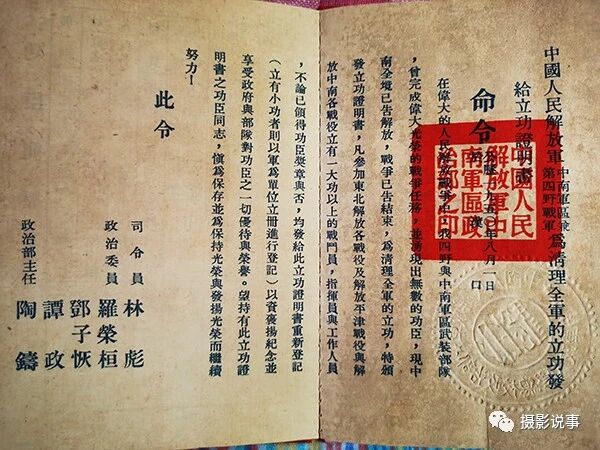 中國人民解放軍中南軍區兼第四野戰軍爲清理全軍的立功發
給立功證明書
命令
年八月一日
漢口
中國人民
解放軍中
南軍區政
治部之印
在偉大的人民解放戰爭中，我四野與中南軍區武裝部隊
，曾完成偉大光榮的戰爭任務，並湧現出無數的功臣，現中
南全境已告解放，戰爭已告結束，爲清理全軍的立功，特頒
發立功證明書，凡參加東北解放各戰役及解放平津戰役與解
放中南各戰役立有一大功以上的戰鬥員，指揮員與工作人員
，不論已領得功臣獎章與否，均發給此立功證明書重新登記
（立有小功者則以軍爲單位立冊進行登記）以資褒揚紀念並
享受政府與部隊對功臣之一切優待與榮譽。望持有此立功證
明書之功臣同志，愼爲保存並爲保持光榮與發揚光榮而繼續
努力！
此令
司令員 林彪
政治委員 羅榮桓
鄧子恢
譚政
政治部主任 陶鑄
摄影说事